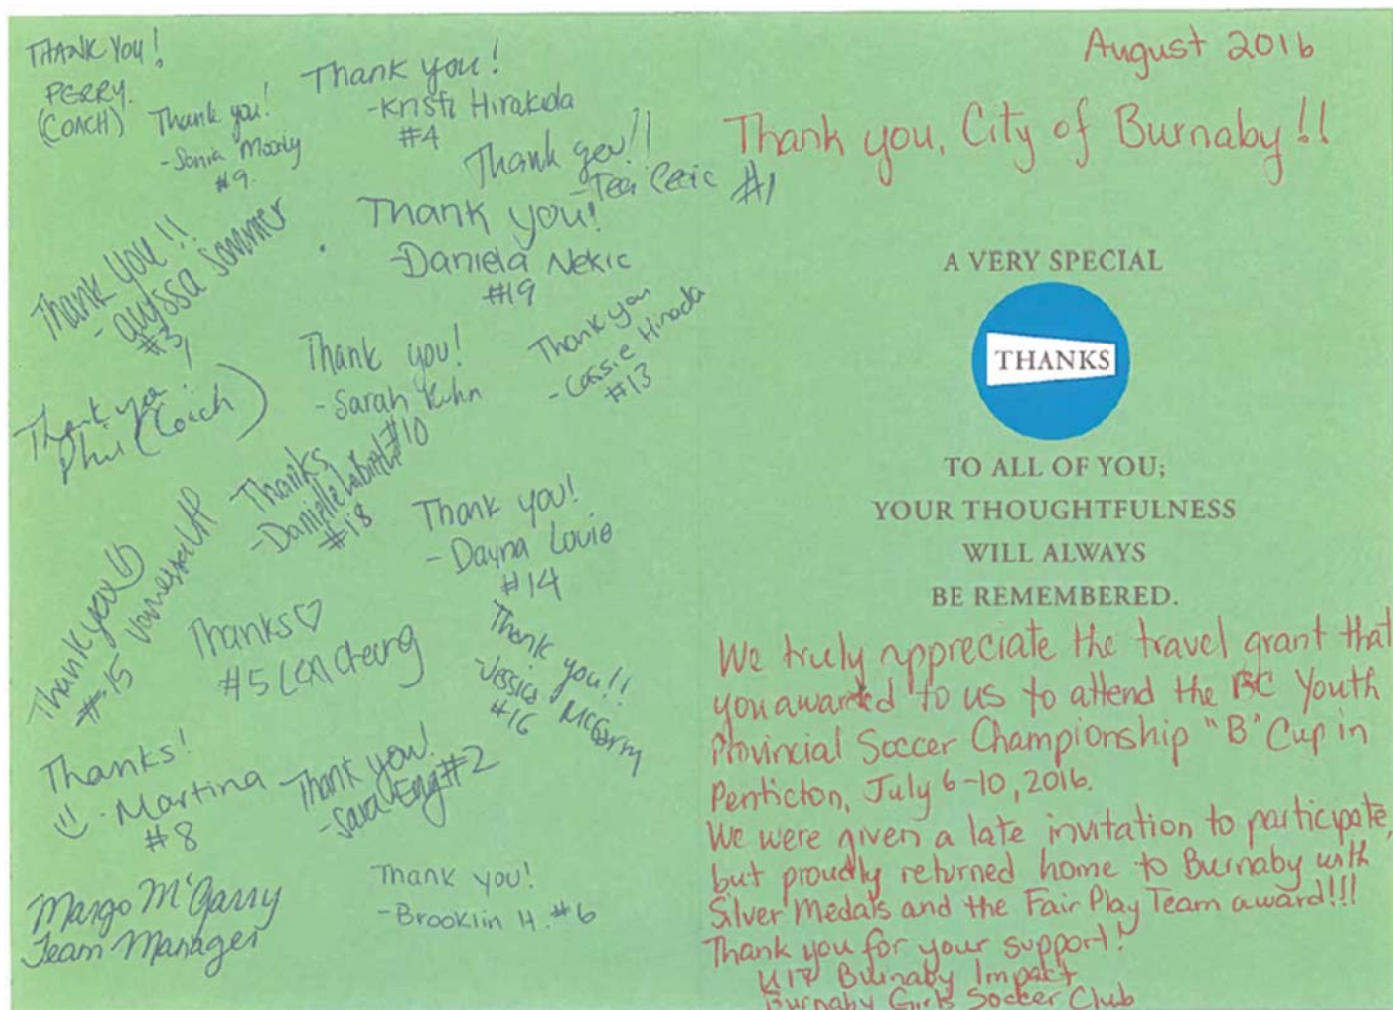 THANK YOU!
PERRY.
(COACH)
Thank you!
-Sonia Moody
#9.
Thank you!
-Kristi Hirakida
#4
Thank you!!
-Tea Cecic #1
Thank you!!
-alyssa Sommer
#3
Thank you!
-Daniela Nekic
#19
Thank you!
Phil (Coach)
Thank you!
-Sarah Kuhn
#10
Thank you
-Cassie Hirada
#13
Thanks
-Danielle
#18
Thank you!
-Dayna Louie
#14
Thank you
#15 Vanessa
Thanks♡
#5 Lexi Cheung
Thank you!!
-Jessica McGarry
#16
Thanks!
Martina
#8
Thank you!
-Sara Eng #2
Margo McGarry
Team Manager
Thank you!
-Brooklin H. #6
August 2016
Thank you, City of Burnaby!!
A VERY SPECIAL
THANKS
TO ALL OF YOU;
YOUR THOUGHTFULNESS
WILL ALWAYS
BE REMEMBERED.
We truly appreciate the travel grant that
you awarded to us to attend the BC Youth
Provincial Soccer Championship "B" Cup in
Penticton, July 6-10, 2016.
We were given a late invitation to participate,
but proudly returned home to Burnaby with
Silver Medals and the Fair Play Team award!!!
Thank you for your support!
U17 Burnaby Impact
Burnaby Girls Soccer Club